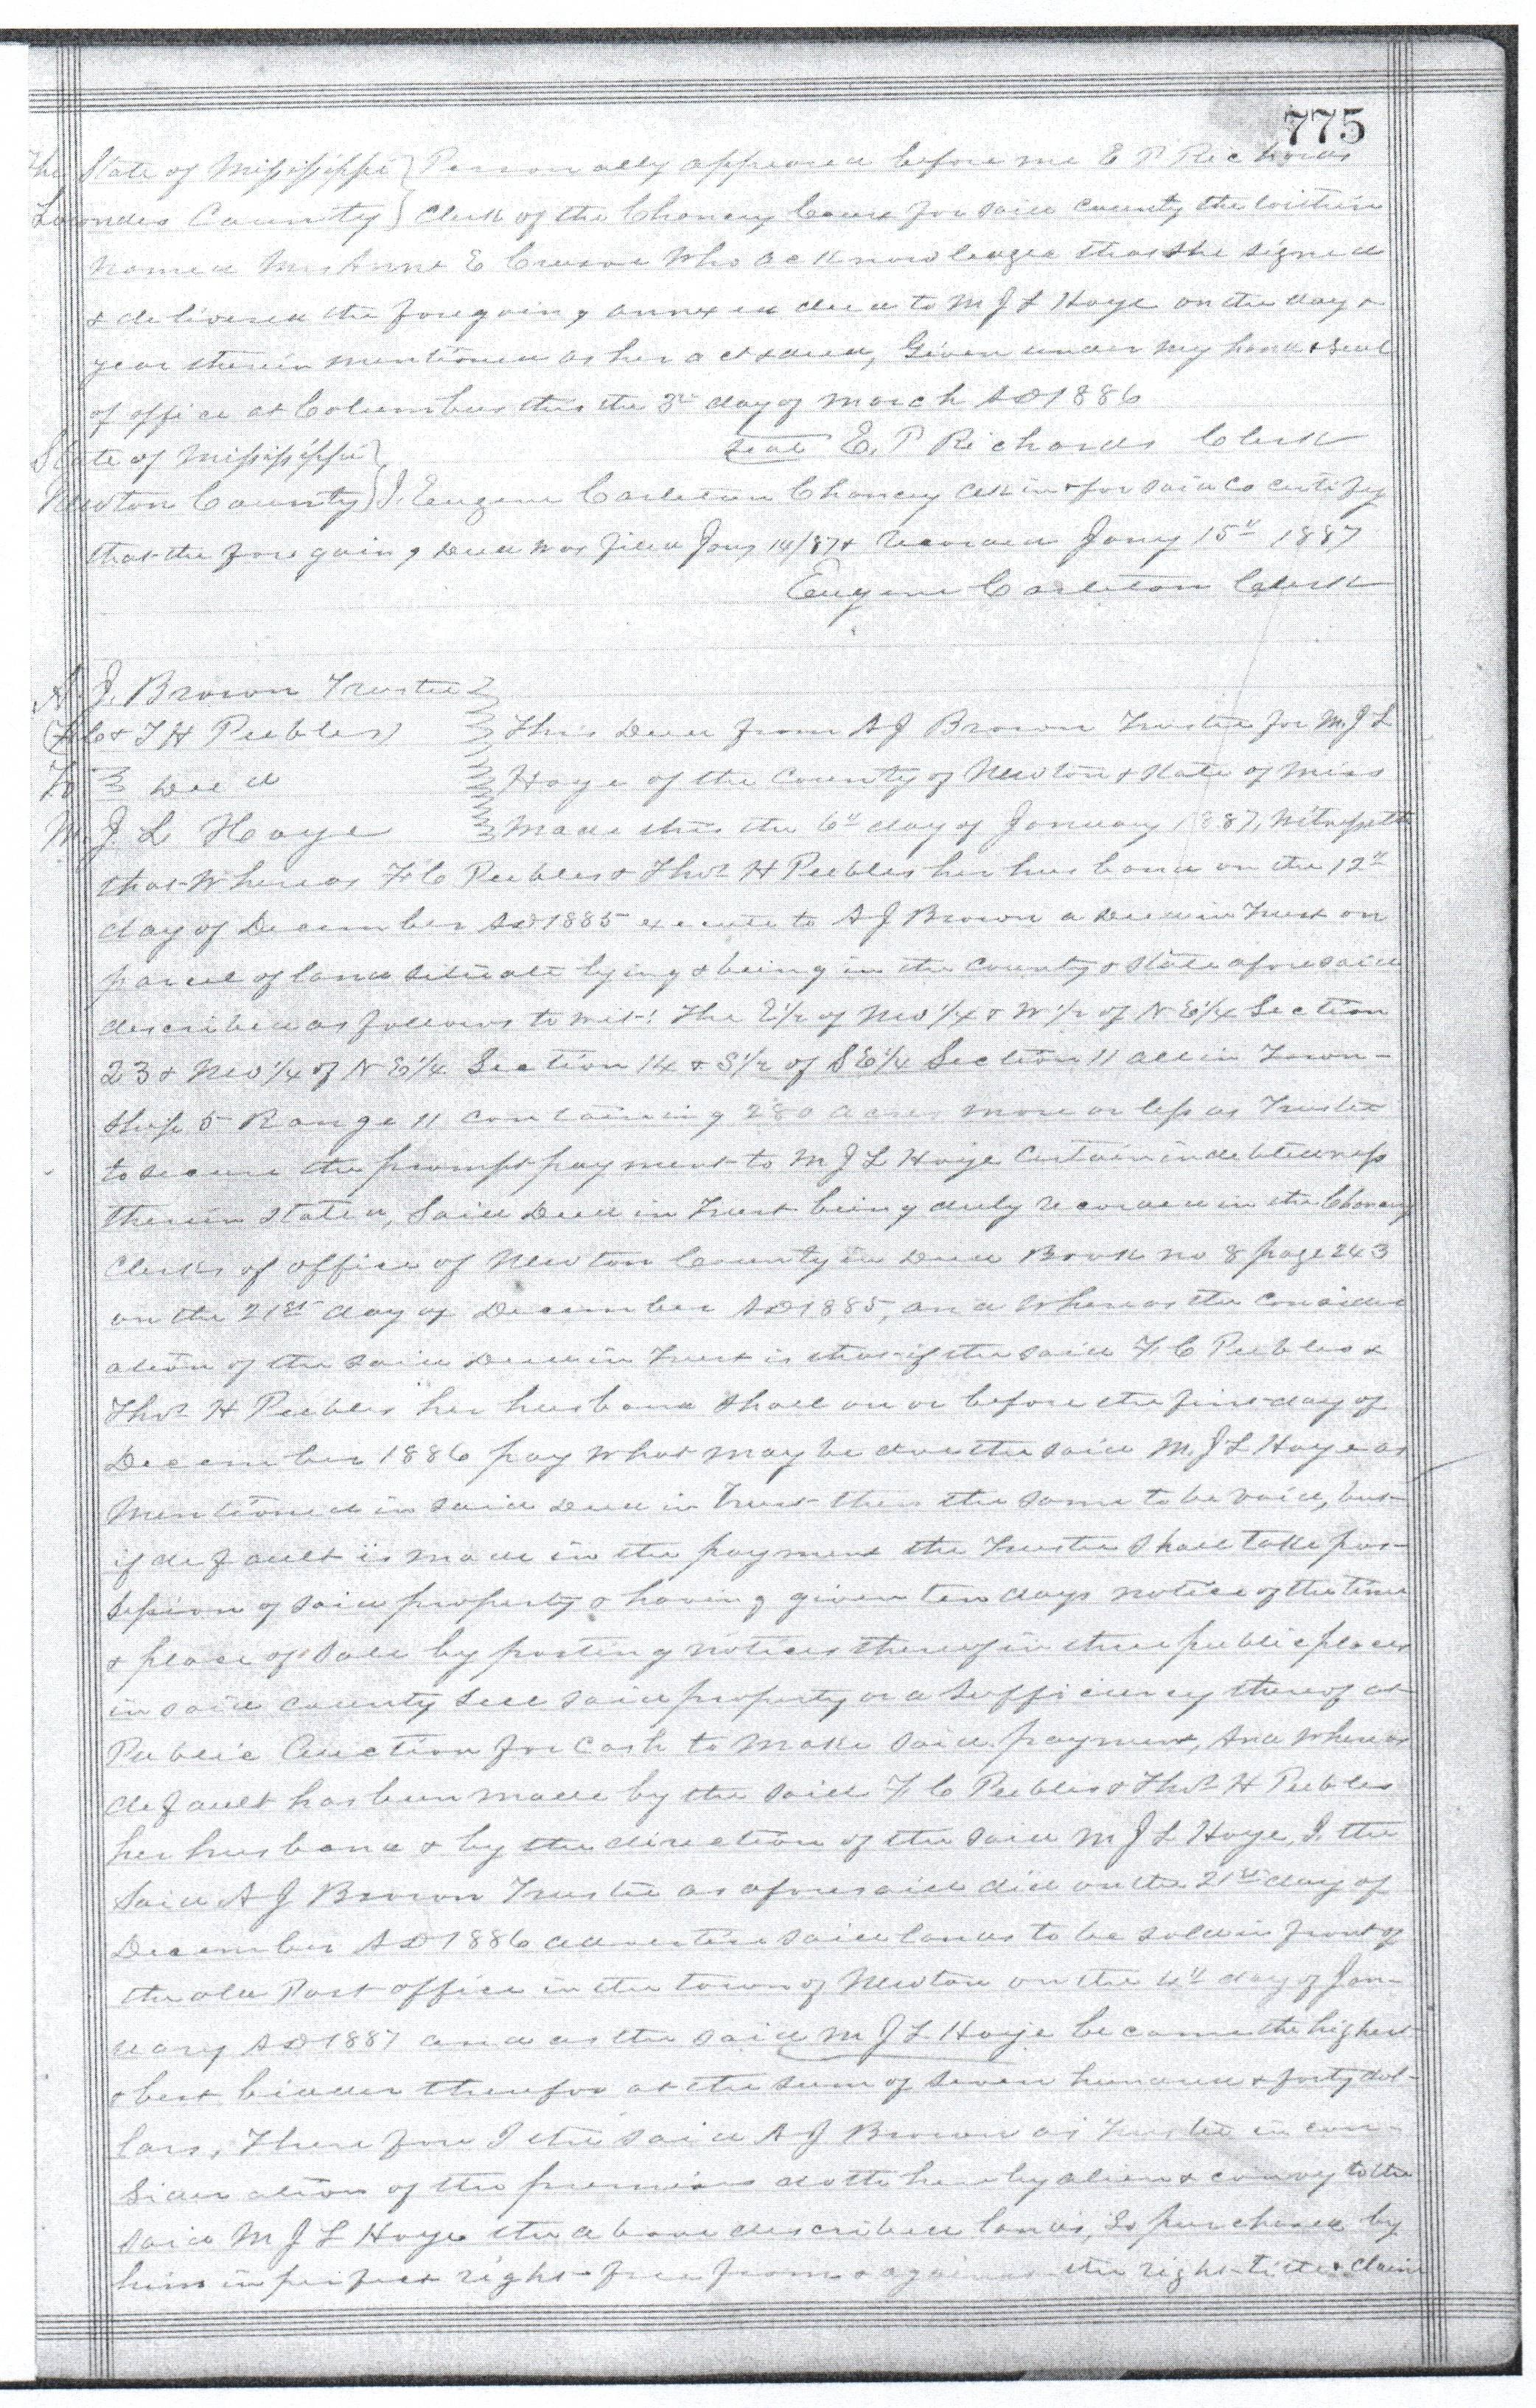 775
The State of Mississippi } Personally appeared before me E P Richards
Lowndes County } Clerk of the Chancy Court for said county the within
named Mrs Anne E who acknowledged that she signed
& delivered the foregoing annexed deed to M J L Hoye on the day &
year therein mentioned as her act & deed, Given under my hand & seal
of office at Columbus this the 3rd day of March AD 1886
seal E. P Richards Clerk
State of Mississippi }
Newton County } I. Eugene Carleton Chancy Clk in & for said Co certify
that the foregoing Deed was filed Jany 14/87 & recorded Jany 15th 1887
Eugene Carleton Clerk
A. J. Brown Trustee
(F C & T H Peebles)
To } Deed
M. J. L Hoye
This Deed from A J Brown Trustee for M. J L
Hoye of the County of Newton & State of Miss
Made this the 6th day of January 1887, Witnesseth
that Whereas F C Peebles & Thos H Peebles her husband on the 12th
day of December AD 1885 execute to A J Brown a Deed in Trust on
parcel of land situate lying & being in the County & State aforesaid
described as follows to wit: The E 1/2 of NW 1/4 & W 1/2 of N E 1/4 Section
23 & NW 1/4 of N E 1/4 Section 14 & S 1/2 of S E 1/4 Section 11 all in Town-
ship 5 Range 11 containing 280 acres more or less as Trustee
to secure the prompt payment to M J L Hoye certain indebtedness
therein stated, Said Deed in Trust being duly recorded in the Chancy
Clerks of office of Newton County in Deed Book no 8 page 243
on the 21st day of December AD 1885, and Whereas the consider
ation of the said Deed in Trust is that if the said F. C Peebles &
Thos H Peebles her husband shall on or before the first day of
December 1886 pay what may be due the said M. J L Hoye as
Mentioned in said Deed in Trust then the same to be void, but
if default is made in the payment the Trustee shall take pos-
session of said property & having given ten days notice of the time
& place of sale by posting notices thereof in three public places
in said county sell said property or a sufficiency thereof at
Public Auction for cash to make said payment, And Whereas
default has been made by the said F. C Peebles & Thos H Peebles
her husband & by the direction of the said M J L Hoye, I. the
Said A J Brown Trustee as aforesaid did on the 21st day of
December AD 1886 advertise said lands to be sold in front of
the old Post office in the town of Newton on the 4th day of Jan-
uary AD 1887 and as the said M J L Hoye became the highest
& best bidder therefor at the sum of seven hundred & forty dol-
lars, Therefore I the said A J Brown as Trustee in con-
sideration of the premises doth hereby alien & convey to the
said M J L Hoye the above described lands, so purchased by
him in perfect right free from & against the right title & claim